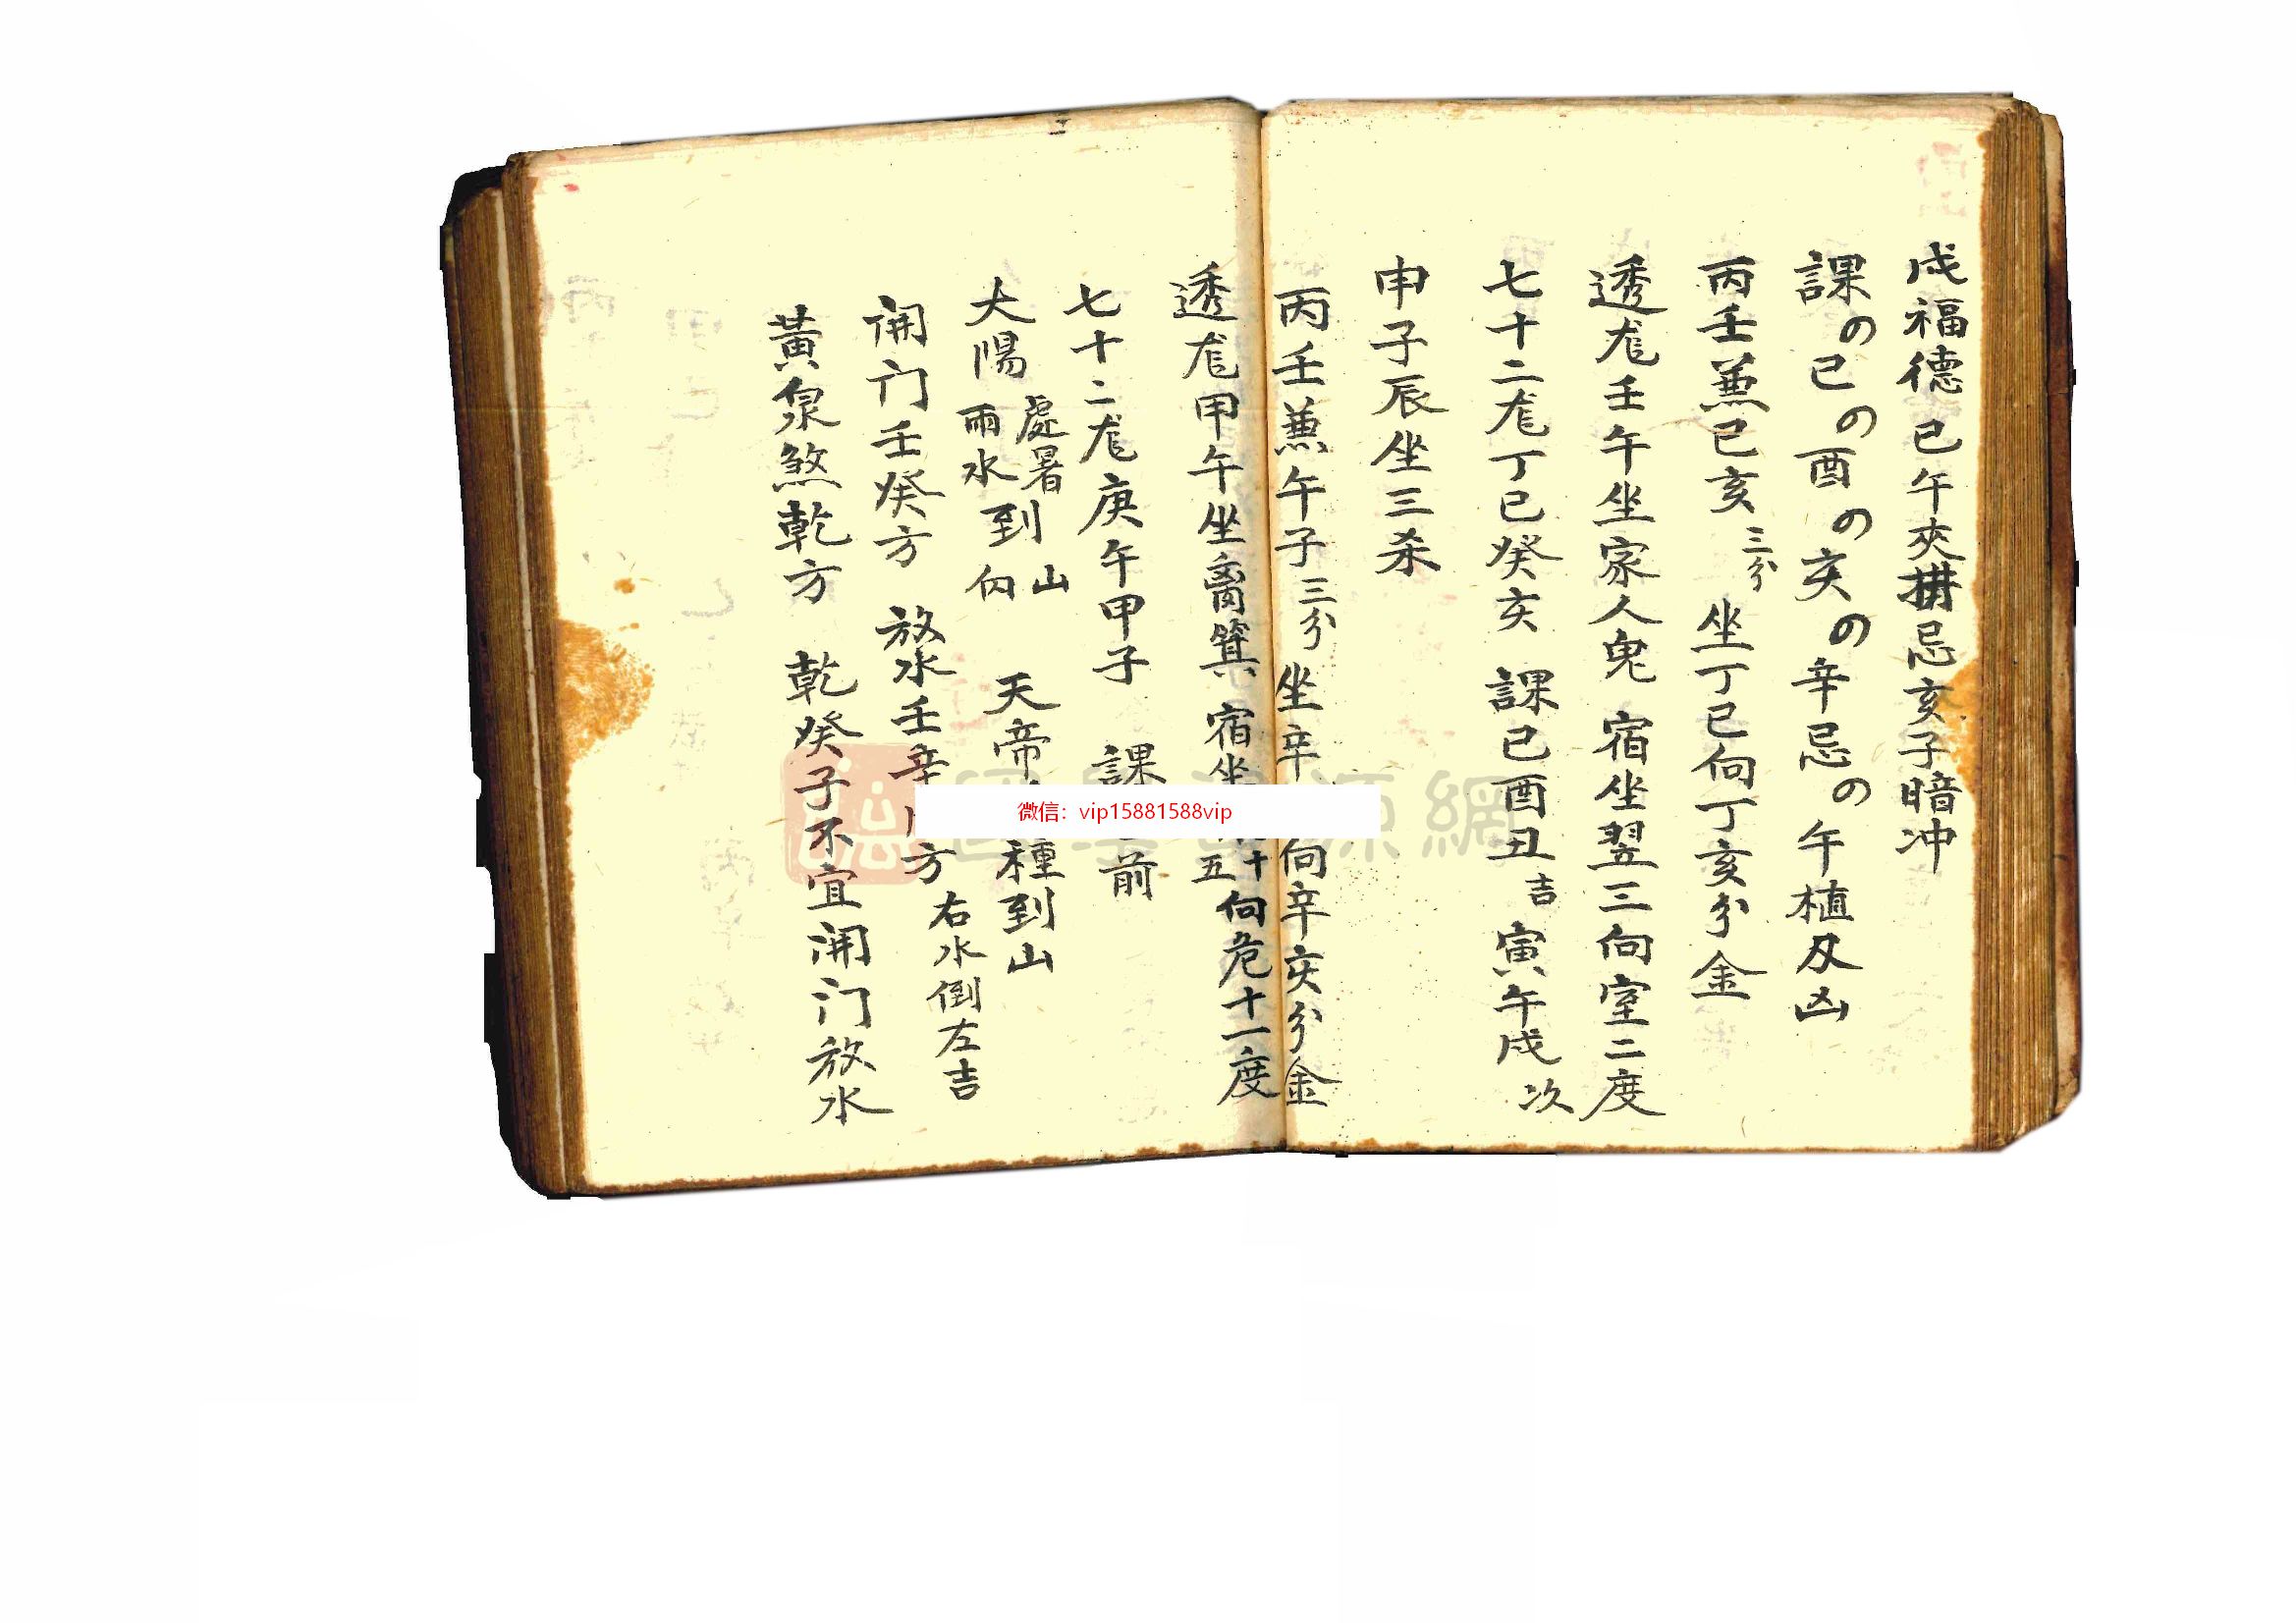 戌福德巳午夾拱忌亥子暗冲
課の已の酉の亥の辛忌の午植及凶
丙壬兼巳亥三分坐丁巳向丁亥分金
透尨壬午坐家人鬼宿坐翌三向室二度
七十二尨丁巳癸亥課已酉丑吉寅午戌次
申子辰坐三杀
丙壬兼午子三分坐辛向辛亥分金
透尨甲午坐离箕宿坐十五向危十一度
七十二尨庚午甲子課前
太陽處暑雨水到山向天帝種到山
開门壬癸方放水壬辛方右水倒左吉
黃泉煞乾方乾癸子不宜開门放水
微信：vip15881588vip
源網